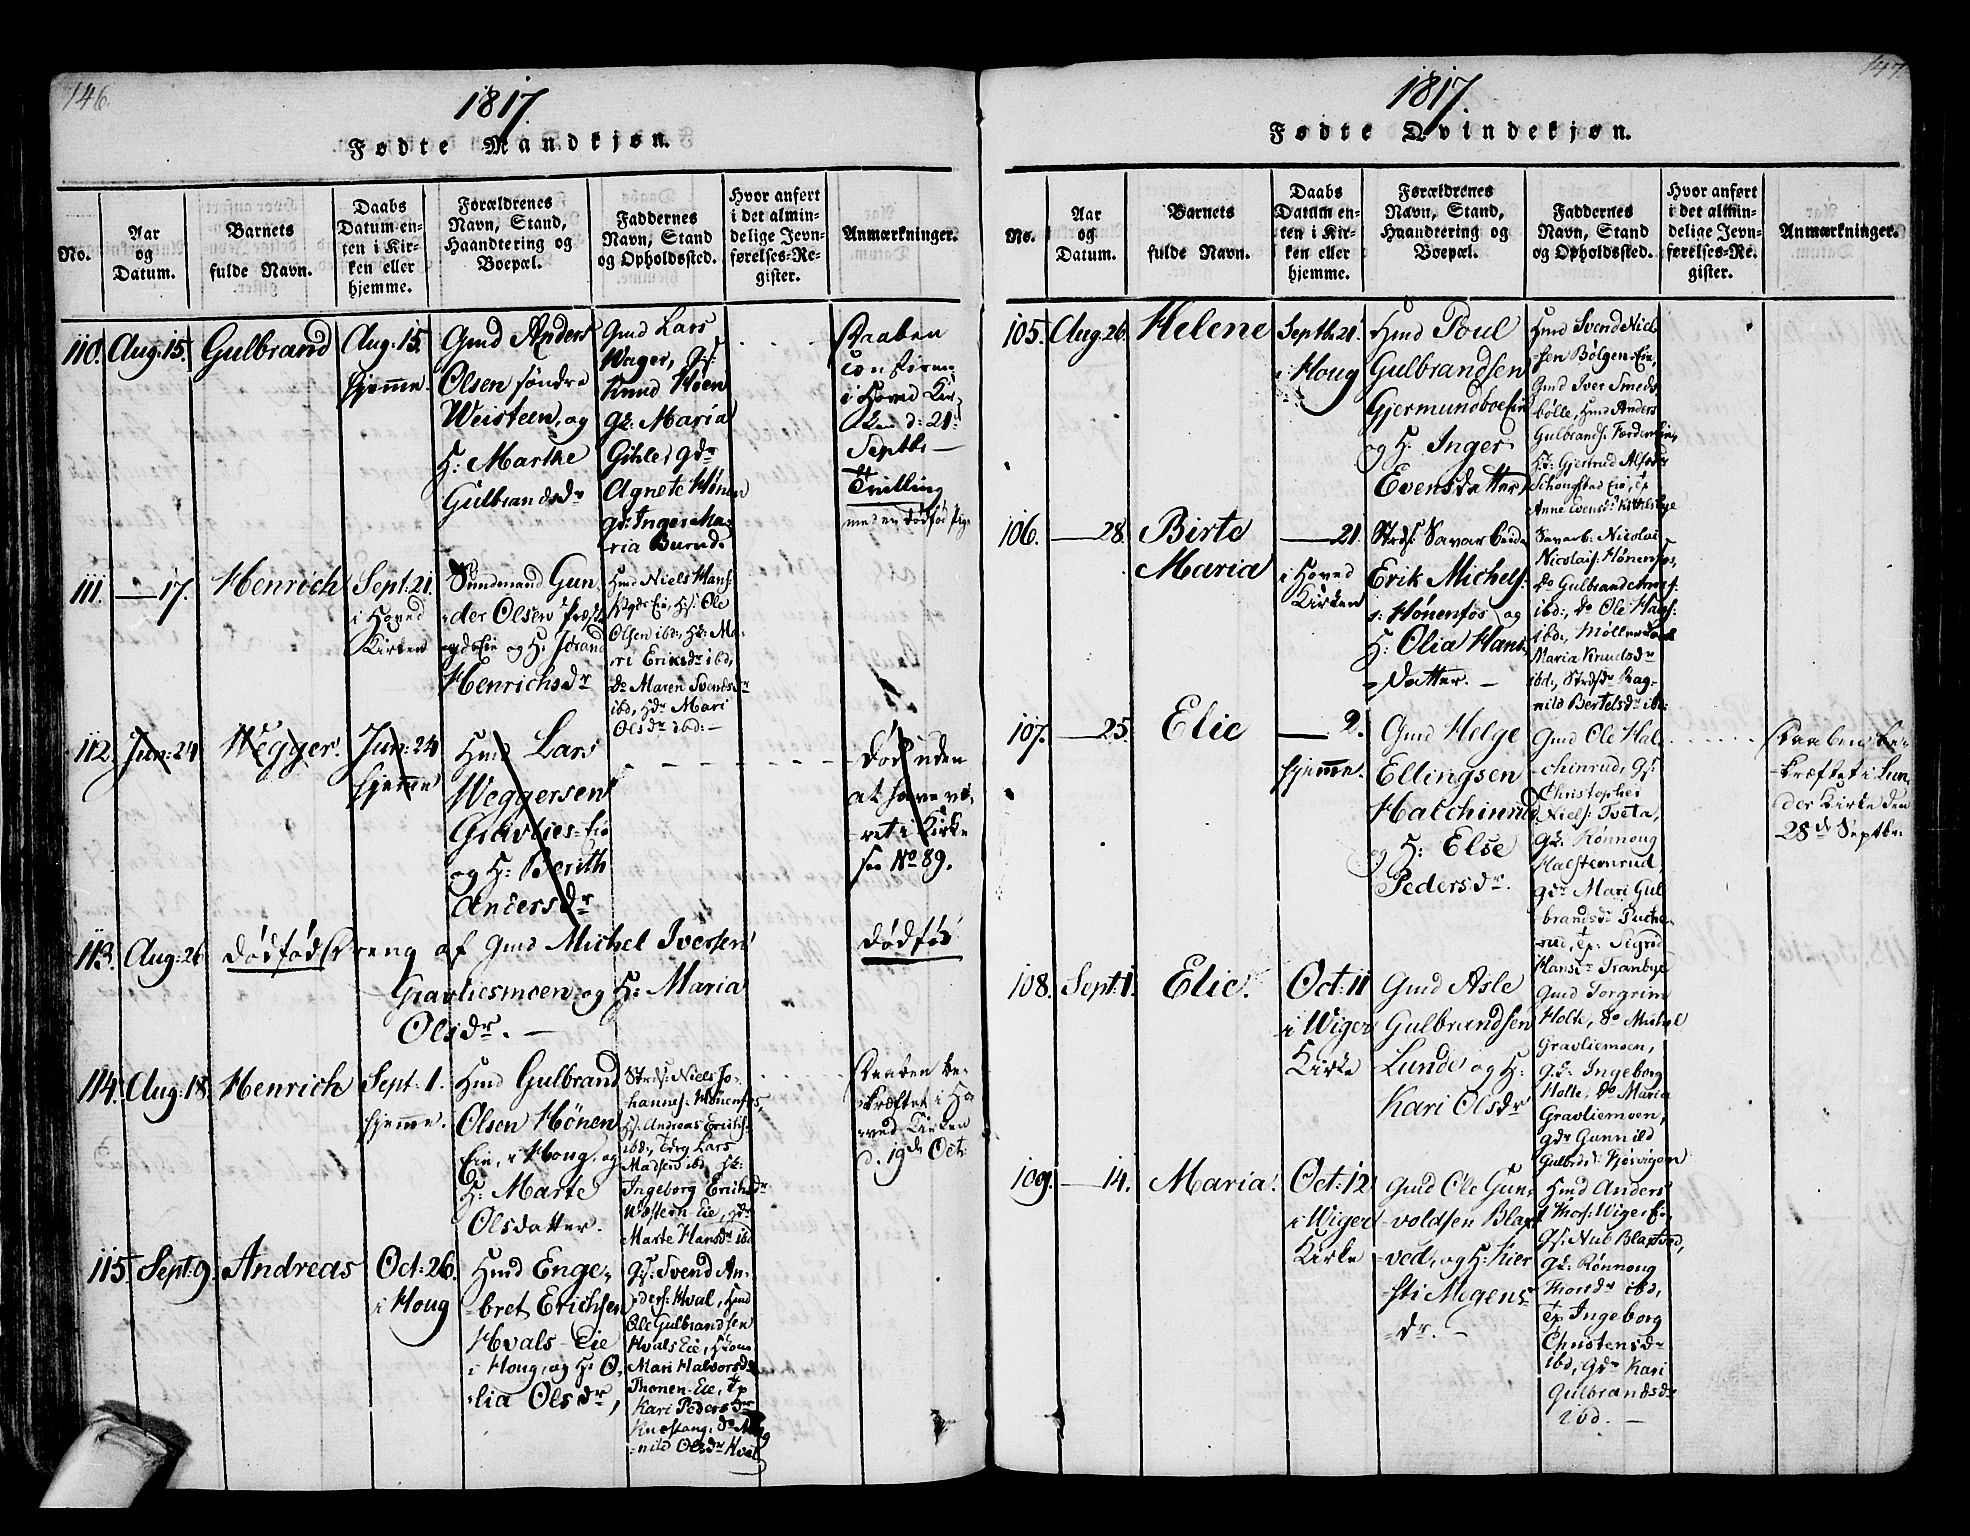 146
1817.
Fødte Mandkjøn.
No.
Aar
og
Datum.
Barnets
fulde Navn.
Daabs
Datum en-
ten i Kir-
ken eller
hjemme.
Forældrenes
Navn, Stand,
Haandtering og
Boepæl.
Faddernes
Navn, Stand
og Opholdssted.
Hvor anført
i det almin-
delige Jevn-
førelses-Re-
gister.
Anmærkninger.
110. Aug: 15. Gulbrand
Aug: 15.
hjemme.
Gmd Anders
Olsen søndre
Weisteen, og
H: Marthe
Gulbrandsdr
Gmd Lars
Wager, gs:
Knud Høen
gk: Maria
Gihle, gdr
Agnete Hønen
gd: Inger Ma-
ria Burud.
Daaben
confirm:
i Hoved Kir-
ken d: 21:
Septbr –
Tvilling
med en dødfød Pige
111. — 17. Henrich
Sept: 21.
i Hoved
Kirken
Huusmand Gun-
der Olsen Præste-
gds Eie og H. Jørand
Henrichsdr
Hmd Niels Hans:
Eie, Hs: Ole
Olsen ibd:, Hk: Ma-
ri Eriksdr ibd,
do Maren Svendsdr
ibd, Hdr Mari
Olsdr ibd: –
112. Jun: 24 Wegger.
Jun: 24
hjemme
Hmd Lars
Weggersen
Gravlies-Eie
og H: Berith
Andersdr
død uden
at have væ-
ret i Kirke
see No 89.
113. Aug: 26 dødfød Dreng af Gmd Michel Iversen
Gravliesmoen og H: Maria
Olsdr. —
dødfød
114. Aug: 18. Henrich
Sept: 1.
hjemme.
Hmd Gulbrand
Olsen Hønen
Eie, i Houg, og
H: Marte
Olsdatter.
Strds: Niels Jo-
hannes: Hønenfos,
Hs: Andreas Erichs:
ibd:, Lars
Madsen ibd, Hk:
Ingeborg Eriksdr
Wæstern-Eie, gdr
Marte Hansdr ibd
Daaben be-
kræftet i Ho-
ved Kirken
d. 19de Oct:
115. Sept: 9. Andreas
Oct: 26.
i Houg
Hmd Enge-
bret Erichsen
Hvals-Eie
i Houg, og H: O-
lia Olsdr,
Gs: Svend An-
ders: Hval, Hmd
Ole Gulbrandsen
Hvals Eie, Hkone
Mari Halvorsdr
Thonen-Eie, Tp
Kari Pedersdr
Knestang, do
nild Olsdr Hval
147
1817.
Fødte Qvindekjøn.
No.
Aar
og
Datum.
Barnets
fulde Navn.
Daabs
Datum en-
ten i Kir-
ken eller
hjemme.
Forældrenes
Navn, Stand,
Haandtering og
Boepæl.
Faddernes
Navn, Stand
og Opholdssted.
Hvor anført
i det almin-
delige Jevn-
førelses-Re-
gister.
Anmærkninger.
105. Aug: 26. Helene
Septbr 21.
i Houg
Hmd Poul
Gulbrandsen
Gjermundboe Eie
og H: Inger
Evensdatter
Hmd Svend Niel-
sen Bølgen-Eie,
Gmd Iver Smeds-
bølle, Hmd Anders
Gulbrands:
Hk: Gjertrud
Schougstad Eie, Tp
Anne Evensdr
106. — 28. Birte
Maria
— 21.
i Hoved
Kirken
Strds: Savarbeider
Erik Michels:
: Hønenfos og
H: Olia Hans-
datter. –
Savarb: Nicolai
Nicolais: Hønenfos,
do Gulbrand Arnes:
ibd:, do Ole Hans:
ibd:, Møller
Maria Knudsdr
ibd:, Strdsdr Rag-
nild Bertelsdr ibd:
107. — 25. Elie
— 2.
hjemme.
Gmd Helge
Ellingsen
Halchinrud
og H: Else
Pedersdr.
Gmd Ole Hal-
chinrud, gs:
Christopher
Niels: Tveta,
gk: Rønnoug
Halsteenrud
gdr Mari Gul-
brandsdr Putte-
rud, Tp: Sigrid
Hansdr Tranbye
Daaben be-
kræftet i Lun-
der Kirke den
28de Septbr:
108. Sept: 1. Elie.
Oct: 11
i Wiger
Kirke
Gmd Asle
Gulbrandsen
Lunde og H:
Kari Olsdr
Gmd Torgrim
Holte, do Michel
Gravliemoen,
gk: Ingeborg
Holte, do Maria
Gravliemoen,
gdr Gunnild
Gulbrds:
109. — 14. Maria.
Oct: 12
i Wiger
Kirke
Gmd Ole Gun-
voldsen Blaxt-
ved, og H: Kier-
sti Mogens-
dr. –
Hmd Anders
Thor: Wiger Eie,
Gs: Nub Blaxtved,
gk: Rønnoug
Thordr ibd,
Tp Ingeborg
Christensdr
ibd, gdr Kari
Gulbrandsdr
ibd. –